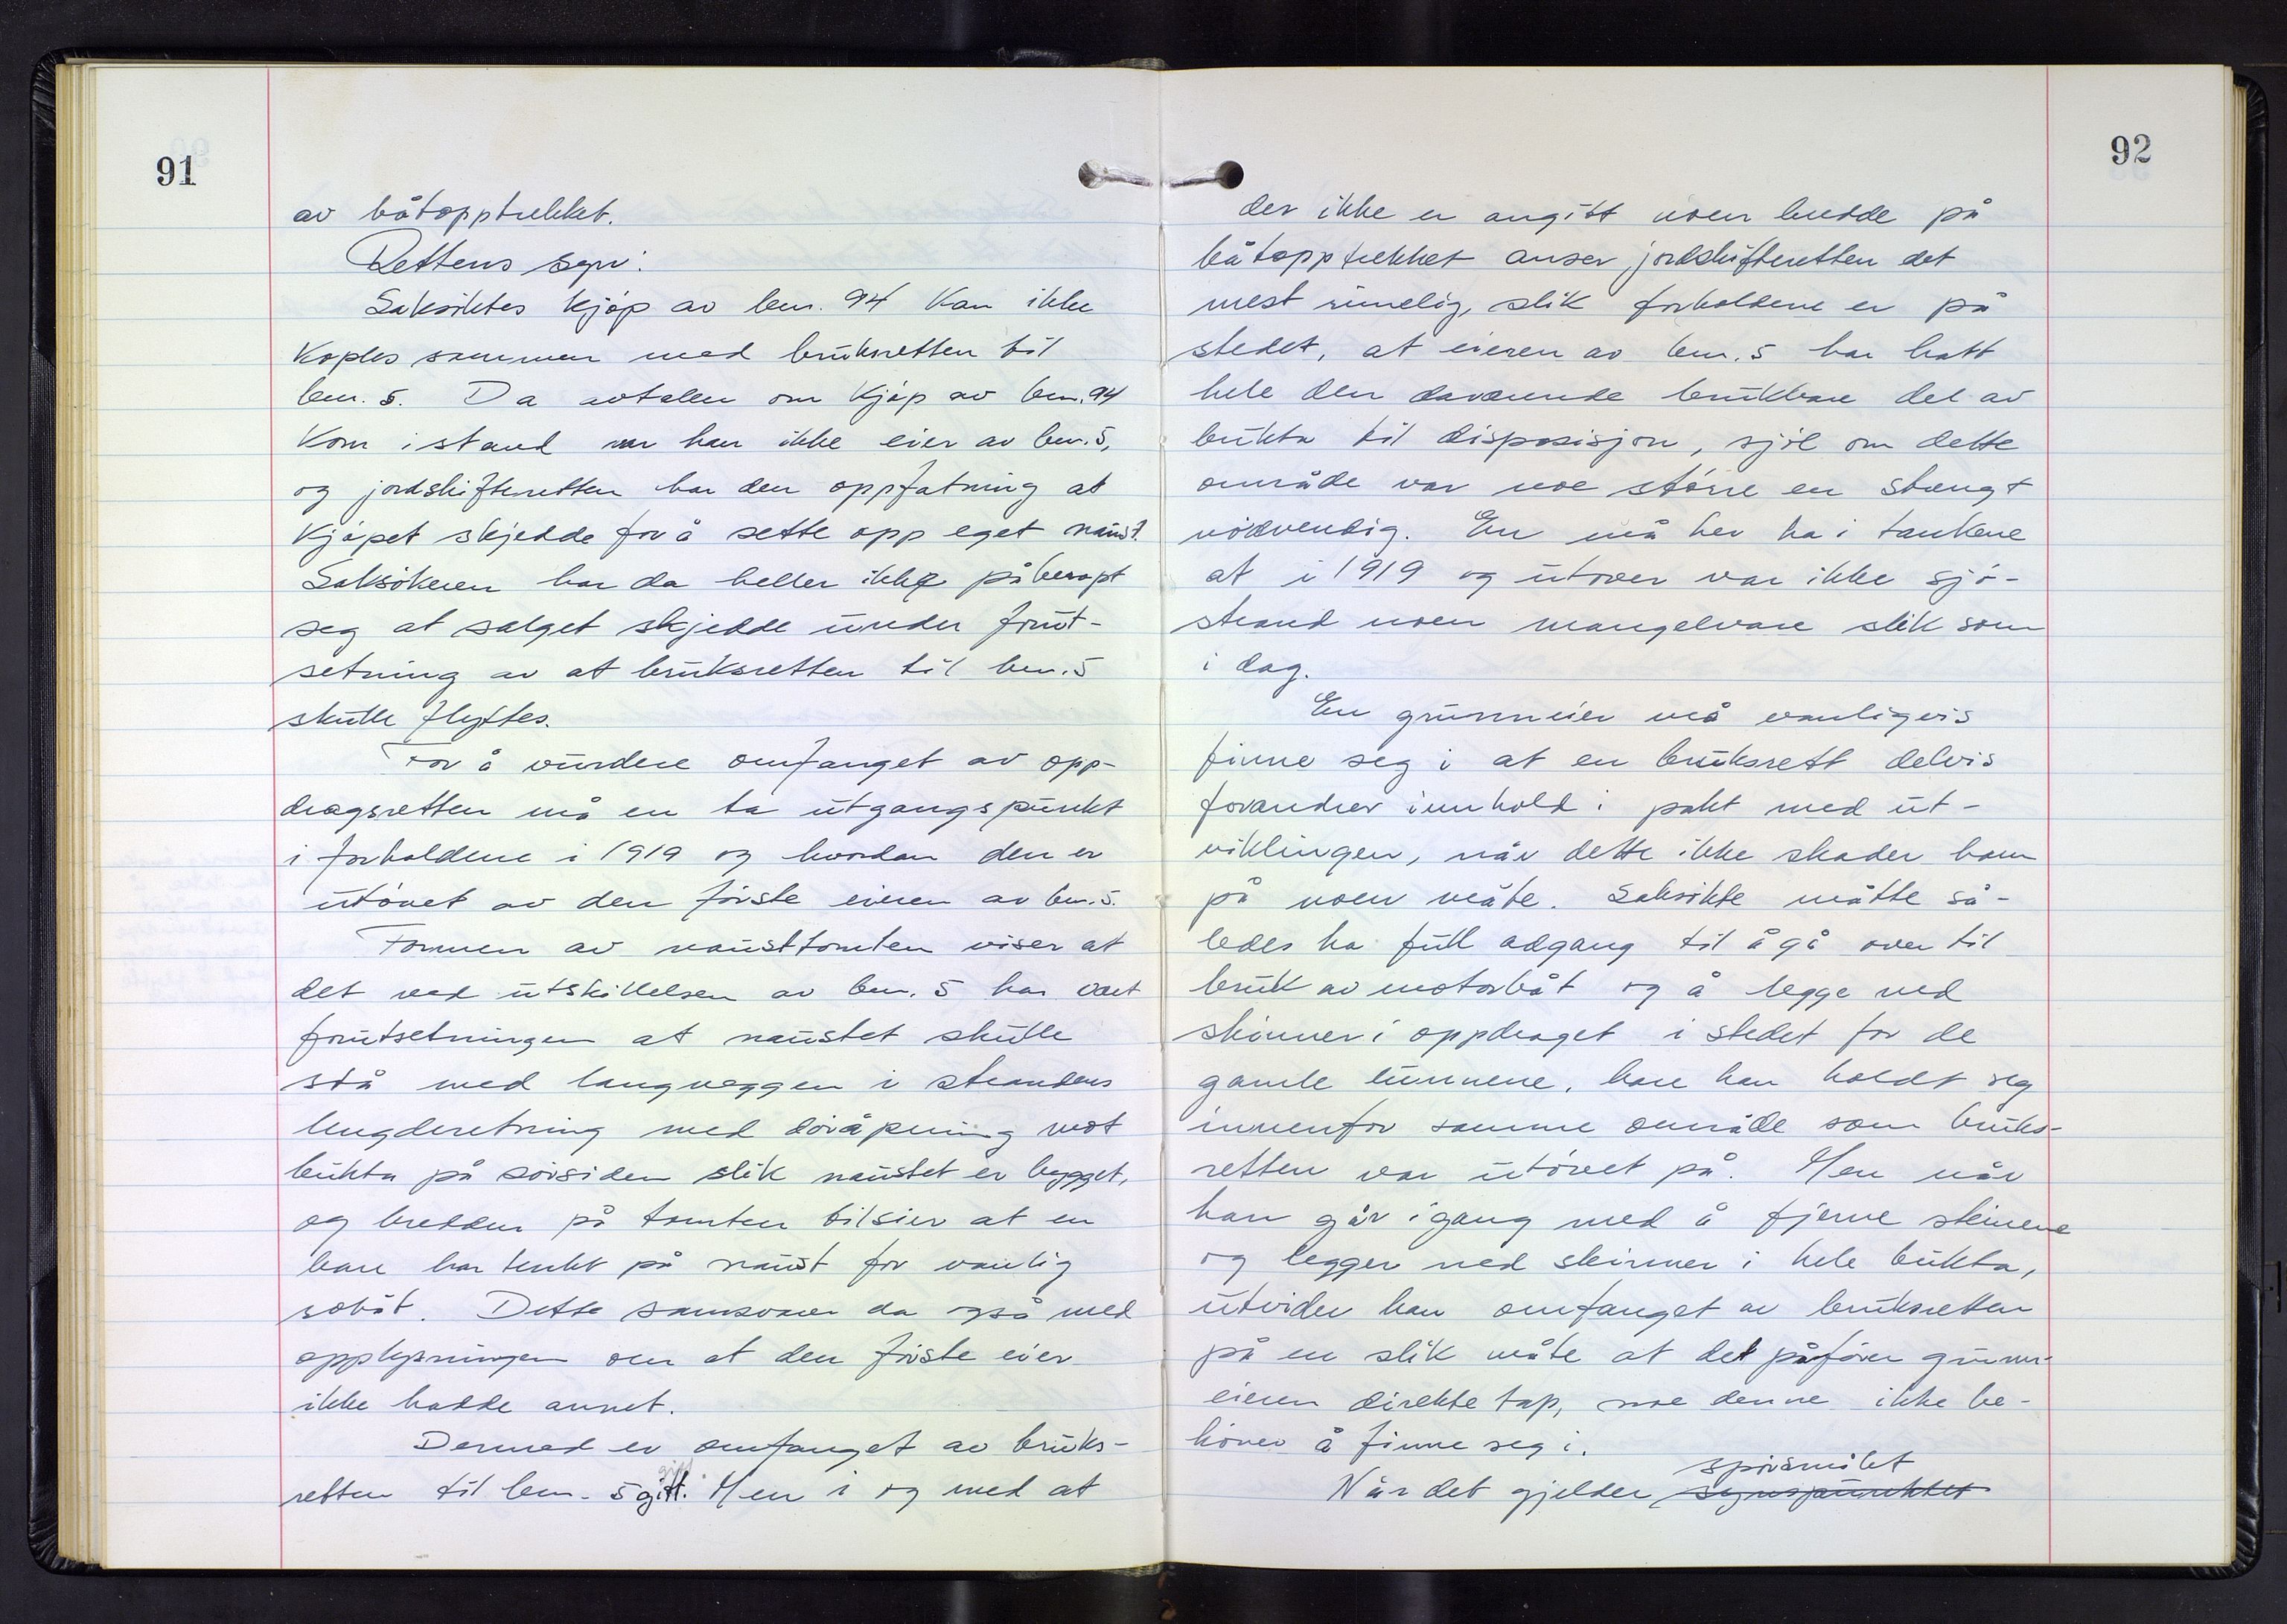 91
av båtopptrekket.
Rettens syn:
Saksøktes kjøp av bnr. 94 kan ikke
koples sammen med bruksretten til
bnr. 5. Da avtalen om kjøp av bnr. 94
kom istand var han ikke eier av bnr. 5,
og jordskifteretten har den oppfatning at
kjøpet skjedde for å sette opp eget naust.
Saksøkeren har da heller ikke påberopt
seg at salget skjedde under forut-
setning av at bruksretten til bnr. 5
skulle flyttes.
For å vurdere omfanget av opp-
dragsretten må en ta utgangspunkt
i forholdene i 1919 og hvordan den er
utøvet av den første eieren av bnr. 5.
Formen av nausttomten viser at
det ved utskillelsen av bnr. 5 har vært
forutsetningen at naustet skulle
stå med langveggen i strandens
lengderetning med døråpning mot
bukta på sørsiden slik naustet er bygget,
og bredden på tomten tilsier at en
bare har tenkt på naust for vanlig
robåt. Dette samsvarer da også med
opplysningen om at den første eier
ikke hadde annet.
Dermed er omfanget av bruks-
retten til bnr. 5 gitt. Men i og med at
92
der ikke er angitt noen bredde på
båtopptrekket anser jordskifteretten det
mest rimelig, slik forholdene er på
stedet, at eieren av bnr. 5 har hatt
hele den daværende brukbare del av
bukta til disposisjon, sjøl om dette
område var noe større en strengt
nødvendig. En må her ha i tankene
at i 1919 og utover var ikke sjø-
strand noen mangelvare slik som
i dag.
En grunneier må vanligvis
finne seg i at en bruksrett delvis
forandrer innhold i pakt med ut-
viklingen, når dette ikke skader ham
på noen måte. Saksøkte måtte så-
ledes ha full adgang til å gå over til
bruk av motorbåt og å legge ned
skinner i oppdraget i stedet for de
gamle lunnene, bare han holdt seg
innenfor samme område som bruks-
retten var utøvet på. Men når
han går igang med å fjerne steinene
og legger ned skinner i hele bukta,
utvider han omfanget av bruksretten
på en slik måte at det påfører grunn-
eieren direkte tap, noe denne ikke be-
høver å finne seg i.
spørsmålet
Når det gjelder synspunktet